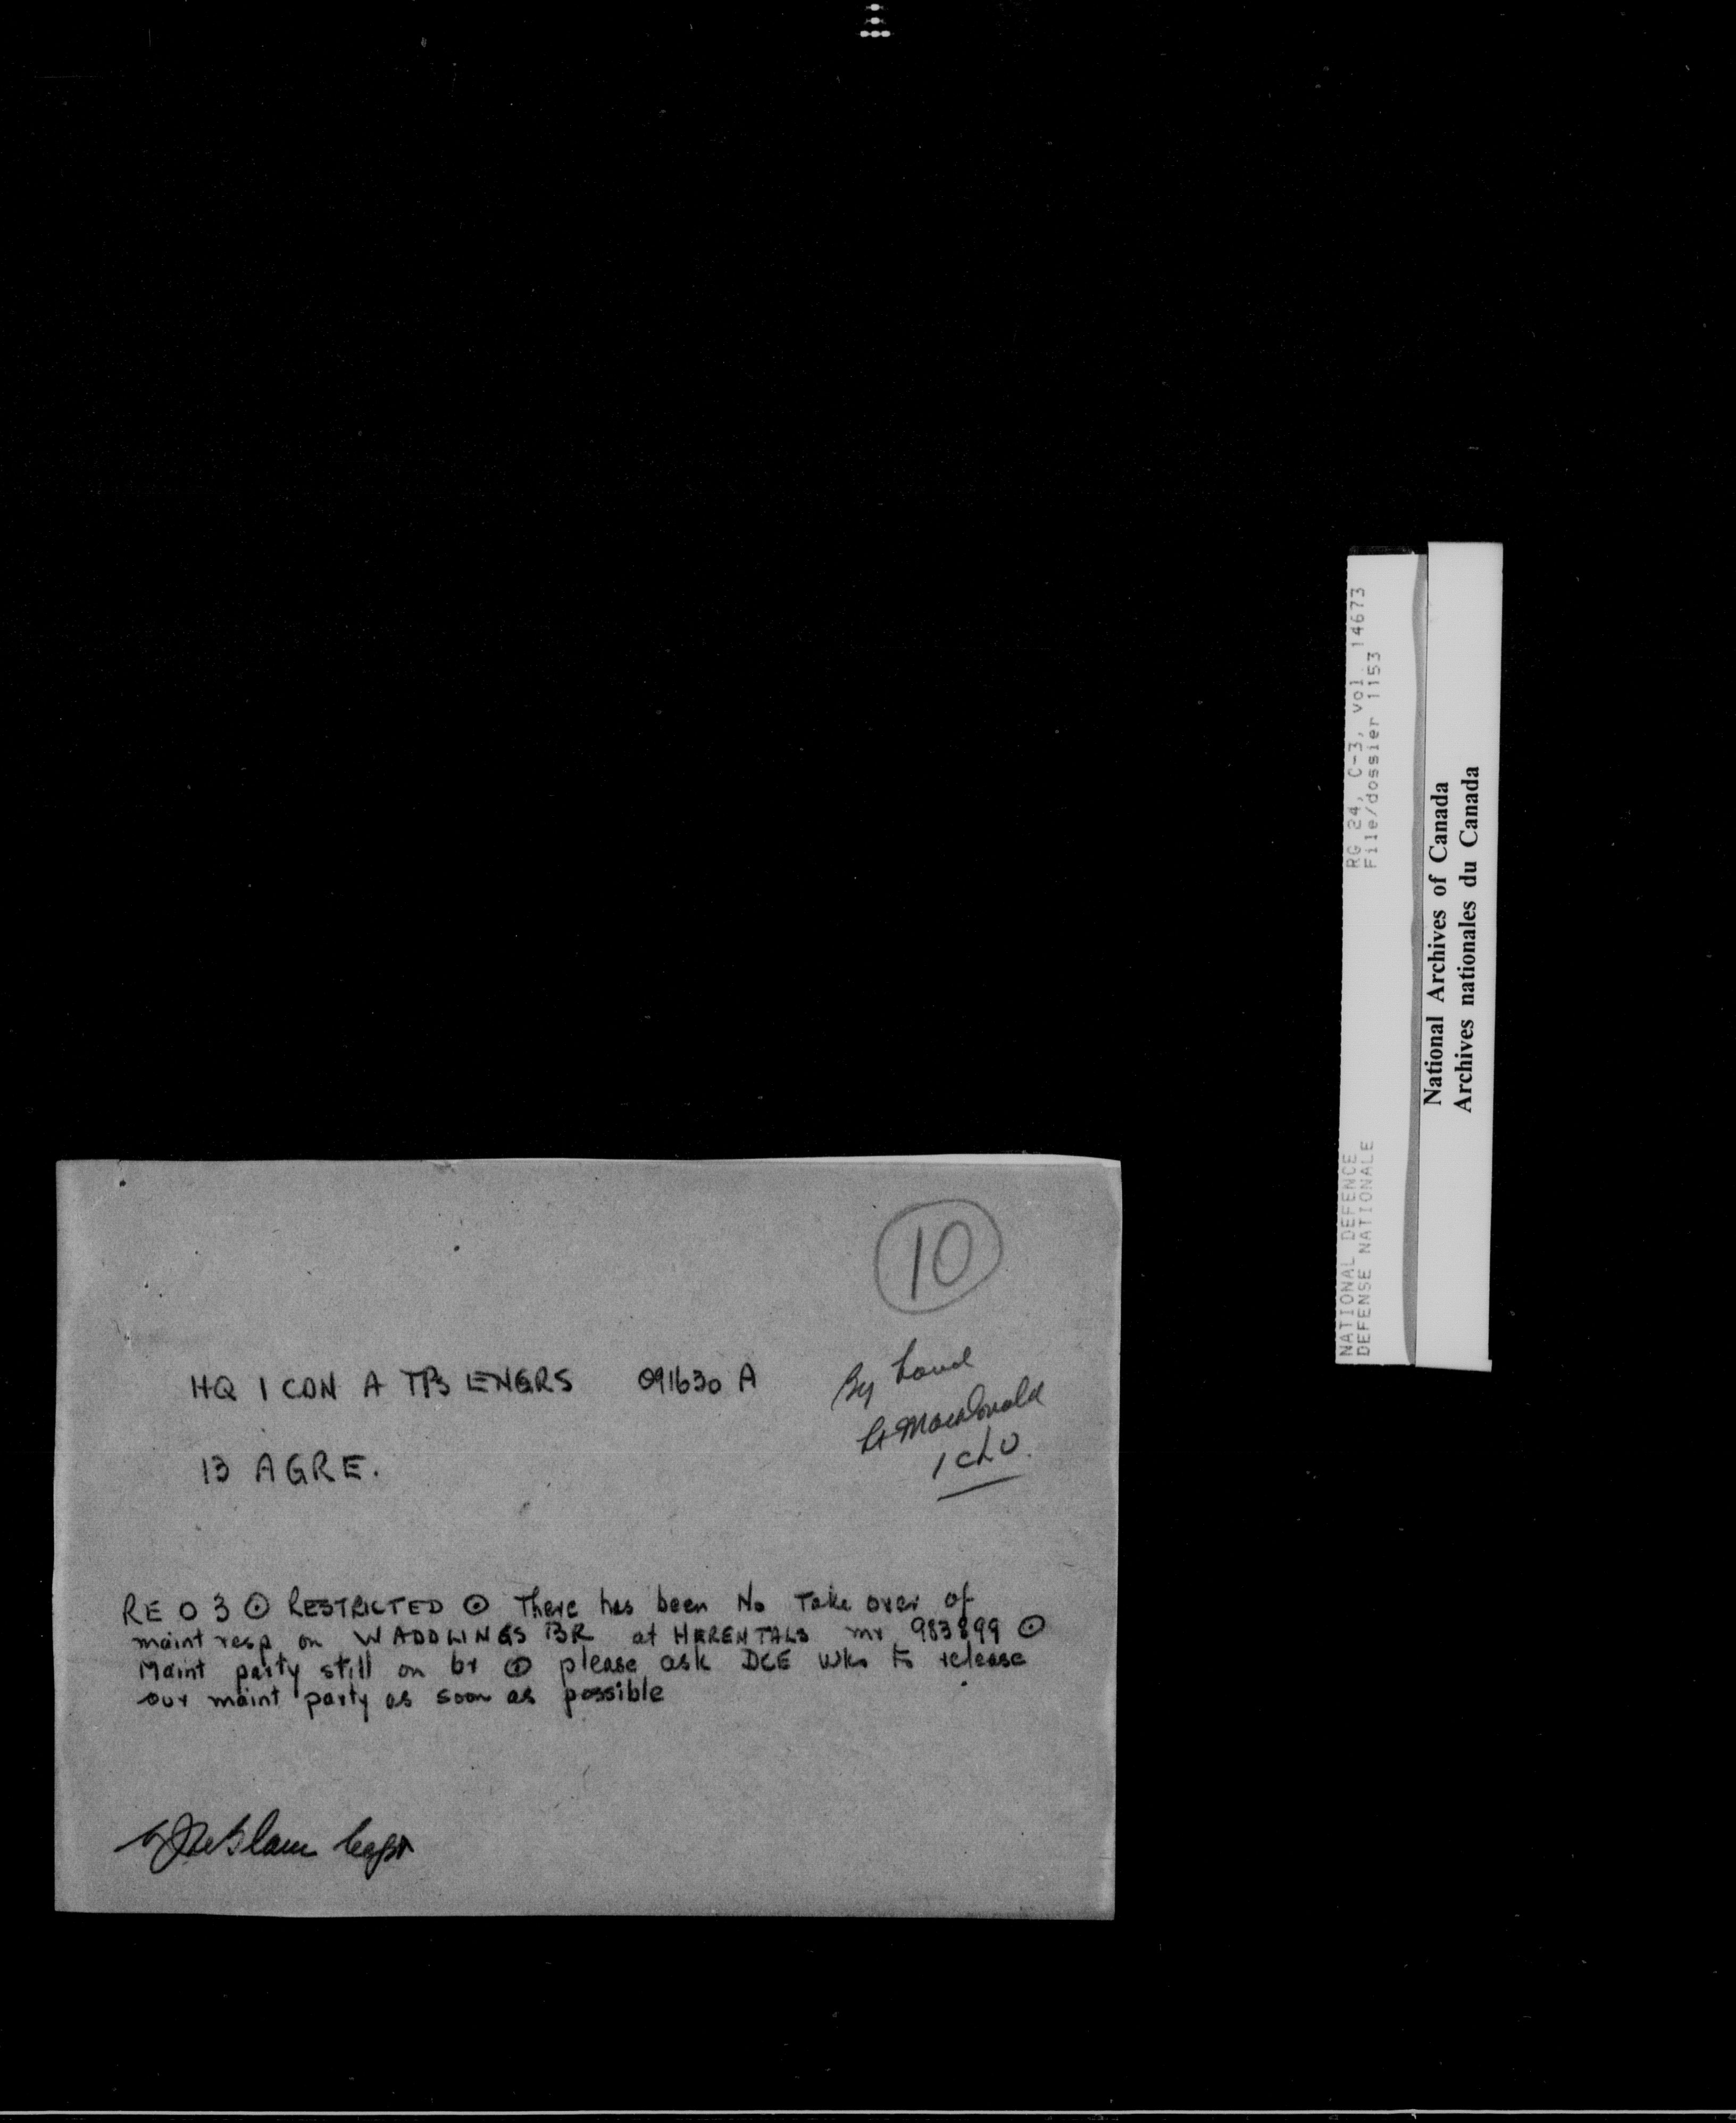 10
HQ 1 CDN A TPS ENGRS 091630 A
By hand
Lt MacDonald
13 AGRE.
REO 3 ⊙ RESTRICTED ⊙ There has been No Take over of
maint resp on WADDLINGS BR at HERENTALS mr 983899 ⊙
Maint party still on br ⊙ please ask DCE wks to release
our maint party as soon as possible
Capt
RG 24, C-3, vol. 14673
File/dossier 1153
NATIONAL DEFENCE
DEFENSE NATIONALE
National Archives of Canada
Archives nationales du Canada